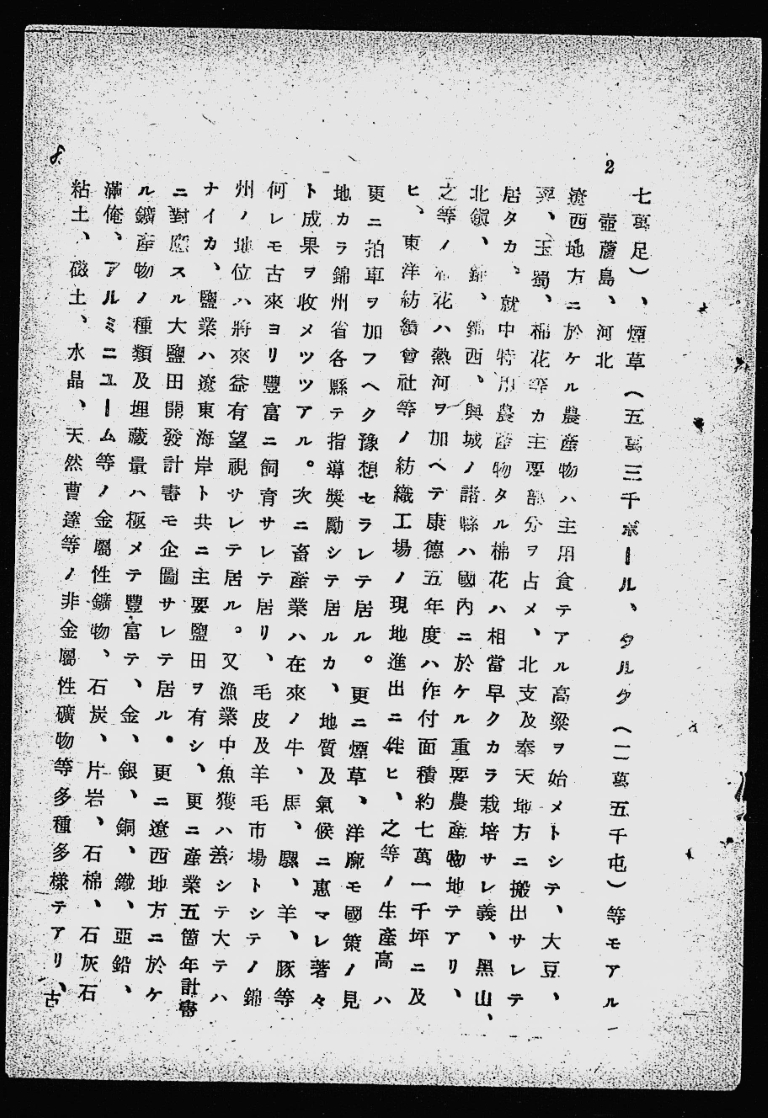 2
七萬足）、煙草（五萬三千ボール、タルク（二萬五千屯）等モアル
壺蘆島、河北
遼西地方ニ於ケル農産物ハ主用食テアル高粱ヲ始メトシテ、大豆、
粟、玉蜀、棉花等カ主要部分ヲ占メ、北支及奉天地方ニ搬出サレテ
居タカ、就中特用農産物タル棉花ハ相當早クカラ栽培サレ義、黑山、
北鎭、錦、錦西、興城ノ諸縣ハ國內ニ於ケル重要農産物地テアリ、
之等ノ棉花ハ熱河ヲ加ヘテ康德五年度ハ作付面積約七萬一千坪ニ及
ヒ、東洋紡績會社等ノ紡織工場ノ現地進出ニ伴ヒ、之等ノ生産高ハ
更ニ拍車ヲ加フヘク豫想セラレテ居ル。更ニ煙草、洋麻モ國策ノ見
地カラ錦州省各縣テ指導奬勵シテ居ルカ、地質及氣候ニ惠マレ著々
ト成果ヲ收メツツアル。次ニ畜産業ハ在來ノ牛、馬、騾、羊、豚等
何レモ古來ヨリ豐富ニ飼育サレテ居リ、毛皮及羊毛市場トシテノ錦
州ノ地位ハ將來益有望視サレテ居ル。又漁業中魚獲ハ蓋シテ大テハ
ナイカ、鹽業ハ遼東海岸ト共ニ主要鹽田ヲ有シ、更ニ產業五箇年計畫
ニ對應スル大鹽田開發計畫モ企圖サレテ居ル。更ニ遼西地方ニ於ケ
ル鑛産物ノ種類及埋藏量ハ極メテ豐富テ、金、銀、銅、鐵、亞鉛、
滿俺、アルミニユーム等ノ金屬性鑛物、石炭、片岩、石棉、石灰石
粘土、磁土、水晶、天然曹達等ノ非金屬性礦物等多種多樣テアリ、古
8.